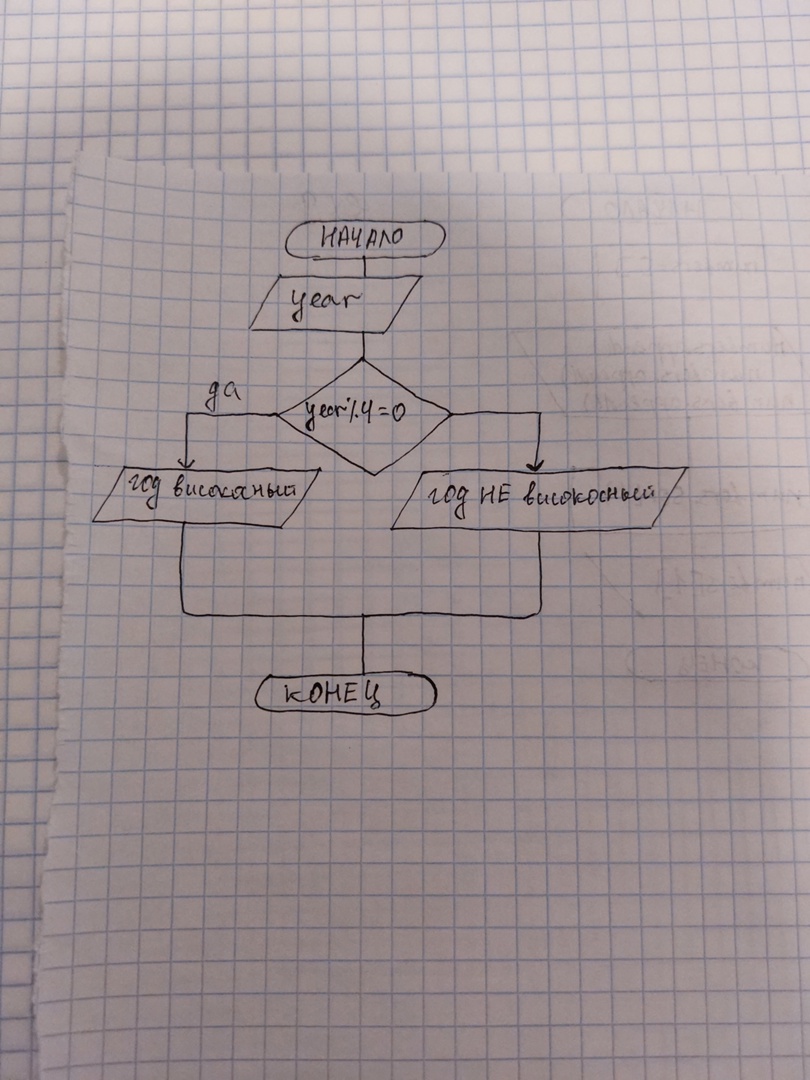 НАЧАЛО
year
да
year%4=0
год високосный
год НЕ високосный
КОНЕЦ